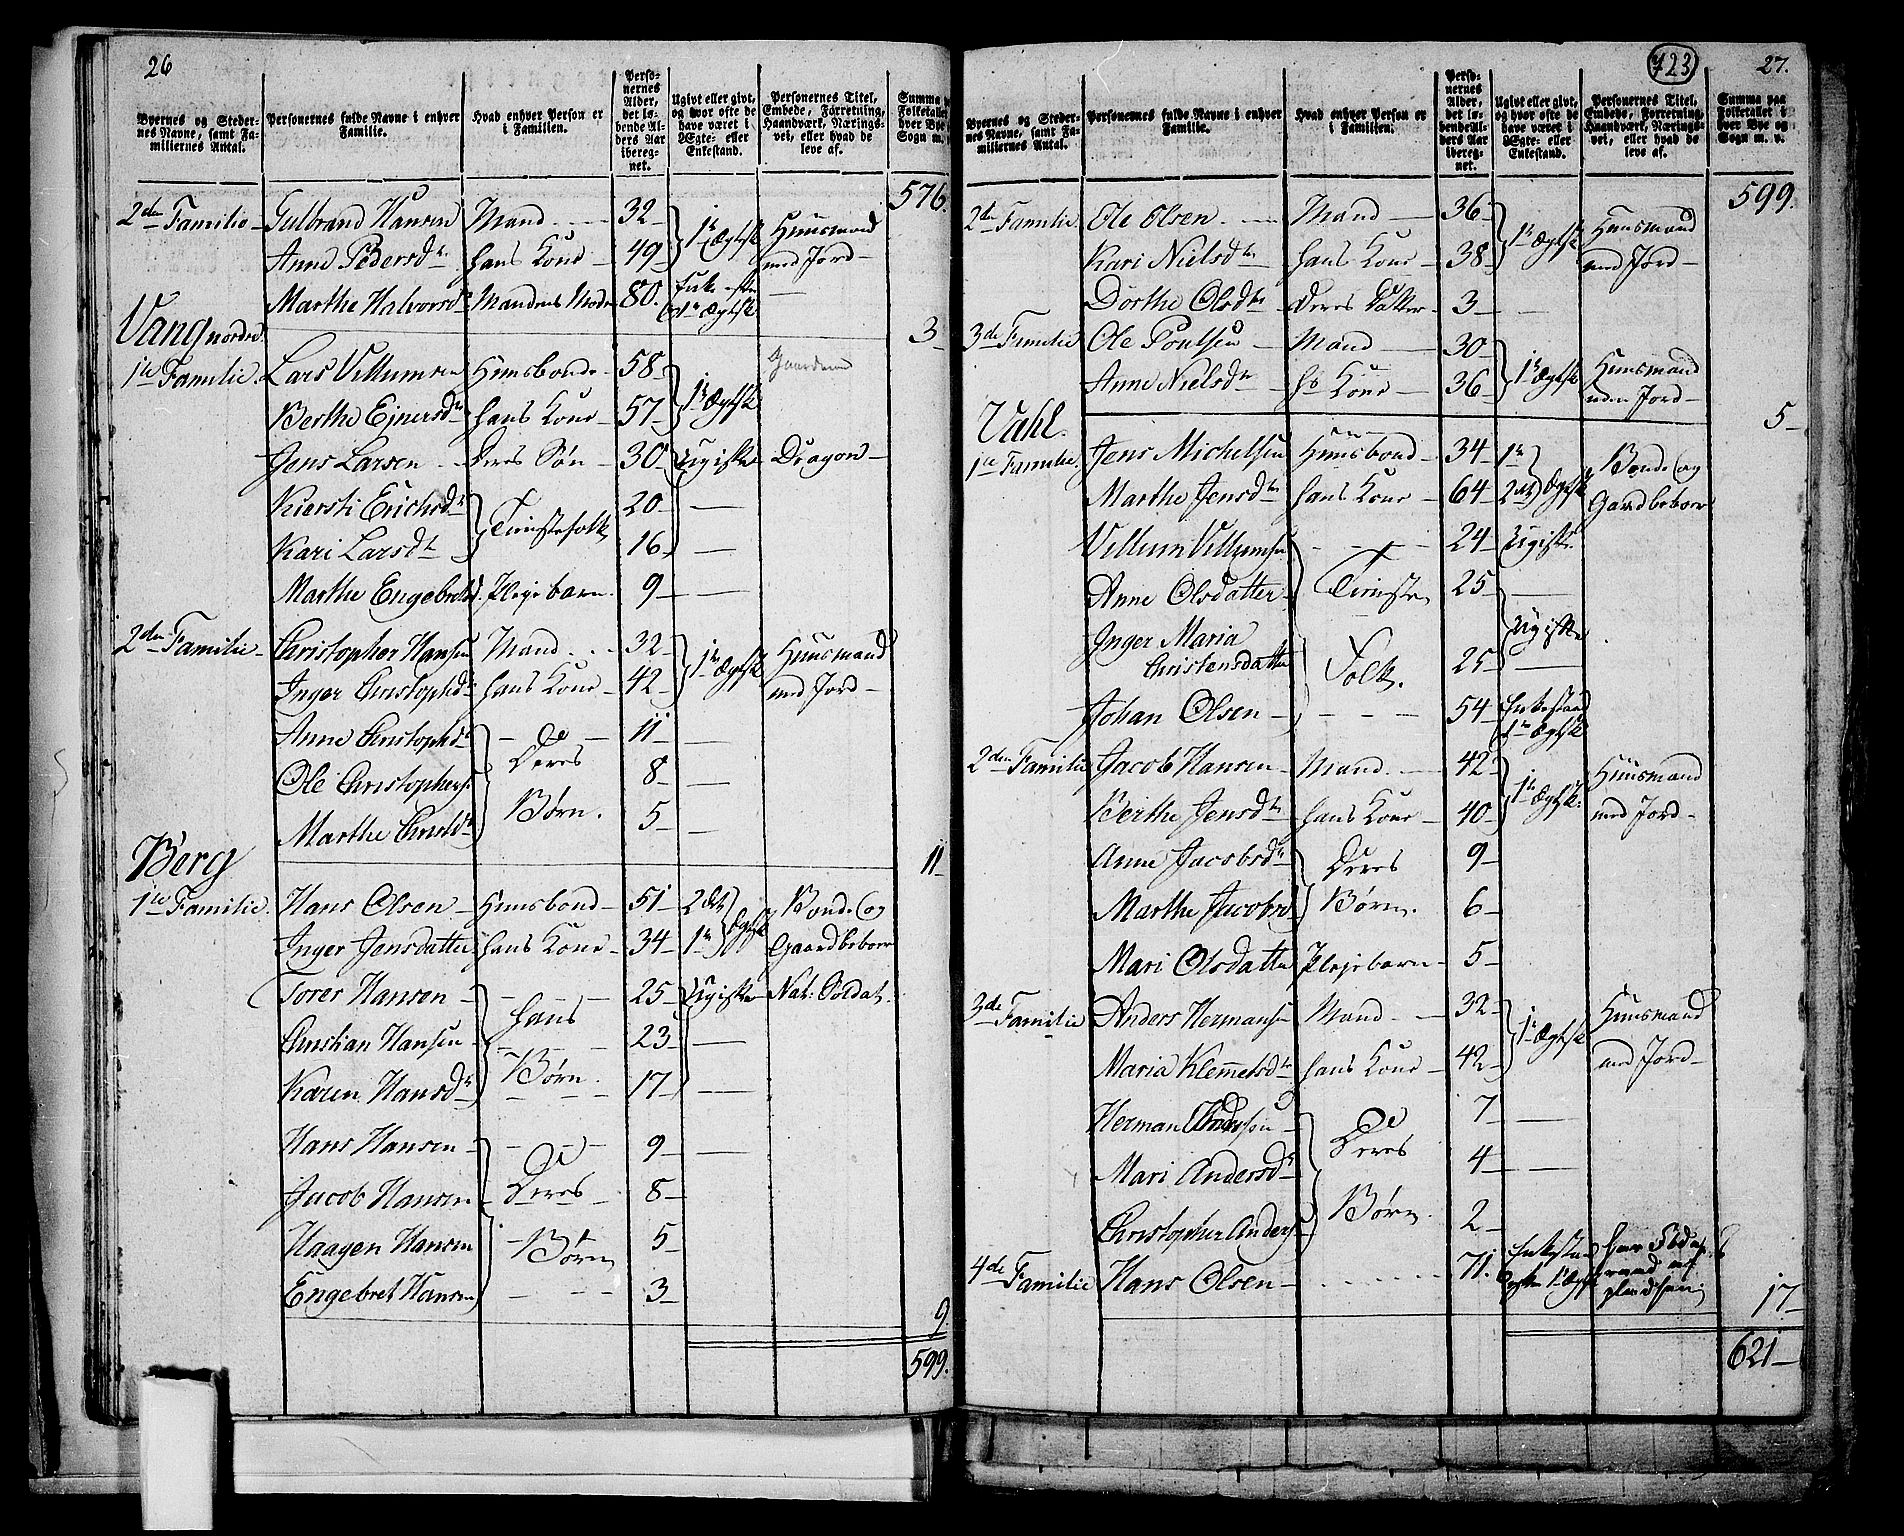 26
Byernes og Steder-
nes Navne, samt Fa-
miliernes Antal.
Personernes fulde Navne i enhver
Familie.
Hvad enhver Person er
i Familien.
Perso-
nernes
Alder,
det lø-
bende Al-
ders Aar
ibereg-
net.
Ugivt eller givt,
og hvor ofte de
have været i
Ægte- eller
Enkestand.
Personernes Titel,
Embede, Forretning,
Haandværk, Nærings-
vei, eller hvad de
leve af.
Summa
Folketallet
hver Bye
Sogn m.
576.
2den Familie Gulbrand Hansen Mand 32 1te Ægtsk Huusmand
Anne Pedersdtr hans Kone 49 med Jord
Marthe Halvorsdtr Mandens Moder 80. Enke efter
1te Ægtsk
Vang nordre 3
1te Familie Lars Villumsen Huusbonde 58 1te Ægtsk Gaardmand
Berthe Ejnersdtr hans Kone 57
Jens Larsen Deres Søn 30 Ugifte Dragon
Kiersti Erichsdtr Tienistefolk 20
Kari Larsdtr 16
Marthe Engebretsd. Plejebarn 9
2den Familie Christopher Hansen Mand 32 1te Ægtsk Huusmand
Inger Christophdtr hans Kone 42 med Jord
Anne Christophdtr Deres 11
Ole Christophers. 8
Marthe Christdtr Børn. 5
Berg 11
1te Familie. Hans Olsen Huusbond 51 2det Ægtsk Bonde og
Inger Jensdatter hans Kone 34 1te Gaardbeboer
Torer Hansen hans 25 Ugifte Nat: Soldat.
Christian Hansen 23
Karen Hansdtr Børn. 17
Hans Hansen 9
Jacob Hansen Deres 8
Haagen Hansen Børn 5
Engebret Hansen 3
9.
599.
723
27.
Byernes og Steder-
nes Navne, samt Fa-
miliernes Antal.
Personernes fulde Navne i enhver
Familie.
Hvad enhver Person er
i Familien.
Perso-
nernes
Alder,
det lø-
bende Al-
ders Aar
ibereg-
net.
Ugivt eller givt,
og hvor ofte de
have været i
Ægte- eller
Enkestand.
Personernes Titel,
Embede, Forretning,
Haandværk, Nærings-
vei, eller hvad de
leve af.
Summa paa
Folketallet i
hver Bye og
Sogn m. v.
599.
2den Familie Ole Olsen Mand 36 1te Ægtsk Huusmand
Kari Nielsdtr hans Kone 38 med Jord
Dorthe Olsdtr Deres Datter 3
3de Familie Ole Poulsen Mand 30 1te Ægtsk Huusmand
Anne Nielsdtr hs Kone 36 uden Jord
Vahl. 5
1te Familie. Jens Michelsen Huusbond 34 1te Ægtsk Bonde og
Marthe Jensdtr hans Kone 64 2det Gaardbeboer
Villum Villumsen 24 Ugifte
Anne Olsdatter Tieniste 25
Inger Maria Ugifte
Christensdatter Folk. 25
Johan Olsen 54 Enkestand
1te Ægtsk
2den Familie Jacob Hansen Mand 42 1te Ægtsk. Huusmand
Berthe Jensdtr hans Kone 40 med Jord
Anne Jacobsdtr Deres 9
Marthe Jacobsd Børn. 6
Mari Olsdatter Plejebarn 5
3de Familie Anders Hermansen Mand 32 1te Ægtsk Huusmand
Maria Klemmetsdtr hans Kone 42 med Jord
Herman Andersøn Deres 7
Mari Andersdtr 4
Christopher Anders Børn. 2
4de Familie Hans Olsen 71. Enkestand
efter 1te Ægtsk
17
621